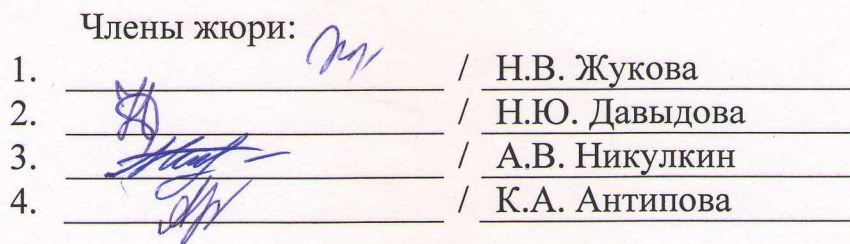 Члены жюри:
1. / Н.В. Жукова
2. / Н.Ю. Давыдова
3. / А.В. Никулкин
4. / К.А. Антипова